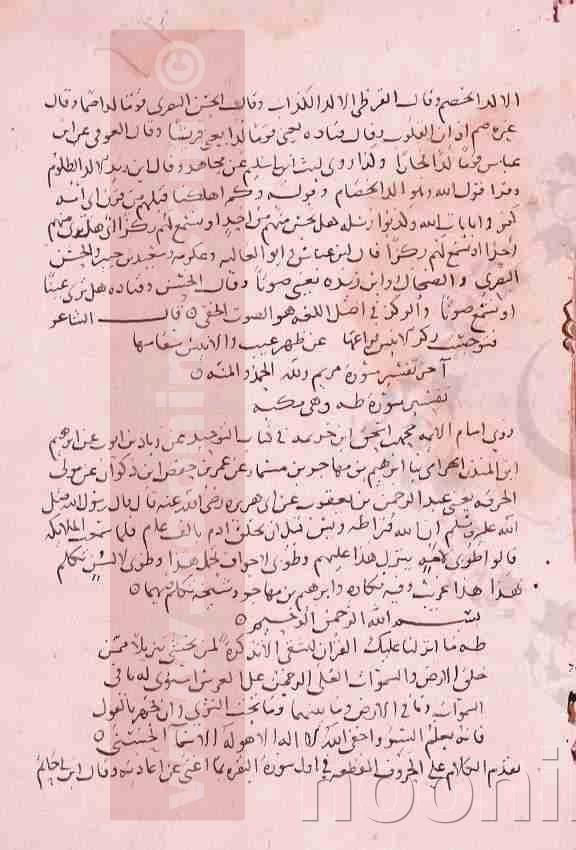 الالد الخصم وقال القرظي الالد الكذاب وقال الحسن البصري قوما لدا صما وقال
غيره صم اذان القلوب وقال قتاده لدا يعني قريشا وقال العوفي عن ابن
عباس قوما لدا فجارا وكذا روى ليث بن ابي سليم عن مجاهد وقال ابن زيد الالد الظلوم
وقرا قول الله وهو الد الخصام وقوله وكم اهلكنا قبلهم من قرن اي امه
كفروا بايات الله وكذبوا رسله هل تحس منهم من احد او تسمع لهم ركزا اي هل ترى منهم
احدا او تسمع لهم ركزا قال ابن عباس وابو العاليه وعكرمه وسعيد بن جبير والحسن
البصري والضحاك وابن زيد يعني صوتا وقال الحسن وقتاده هل ترى عينا
او تسمع صوتا والركز في اصل اللغه هو الصوت الخفي قال الشاعر
فتوجست ركز الانيس فراعها عن ظهر غيب والانيس سقامها
آخر تفسير سورة مريم ولله الحمد والمنه
تفسير سورة طه وهي مكيه
روى امام الايمه محمد بن اسحق ابن خزيمه في كتاب التوحيد عن زياد بن ايوب عن ابرهيم
ابن المنذر الحزامي ثنا ابرهيم بن مهاجر بن مسمار عن عمر بن حفص ابن ذكوان عن مولى
الحرقه يعني عبد الرحمن بن يعقوب عن ابي هريره رضي الله عنه قال قال رسول الله صلى
الله عليه وسلم ان الله قرا طه ويس قبل ان يخلق ادم بالف عام فلما سمعت الملائكه
قالوا طوبى لامه ينزل هذا عليهم وطوبى لاجواف تحمل هذا وطوبى لالسن تتكلم
بهذا هذا غريب وفيه نكاره وابرهيم بن مهاجر وشيخه تكلم فيهما
بسم الله الرحمن الرحيم
طه ما انزلنا عليك القران لتشقى الا تذكرة لمن يخشى تنزيلا ممن
خلق الارض والسموات العلى الرحمن على العرش استوى له ما في
السموات وما في الارض وما بينهما وما تحت الثرى وان تجهر بالقول
فانه يعلم السر واخفى الله لا اله الا هو له الاسما الحسنى
تقدم الكلام على الحروف المقطعه في اول سورة البقره بما اغنى عن اعادته وقال ابن ابي حاتم
noonl